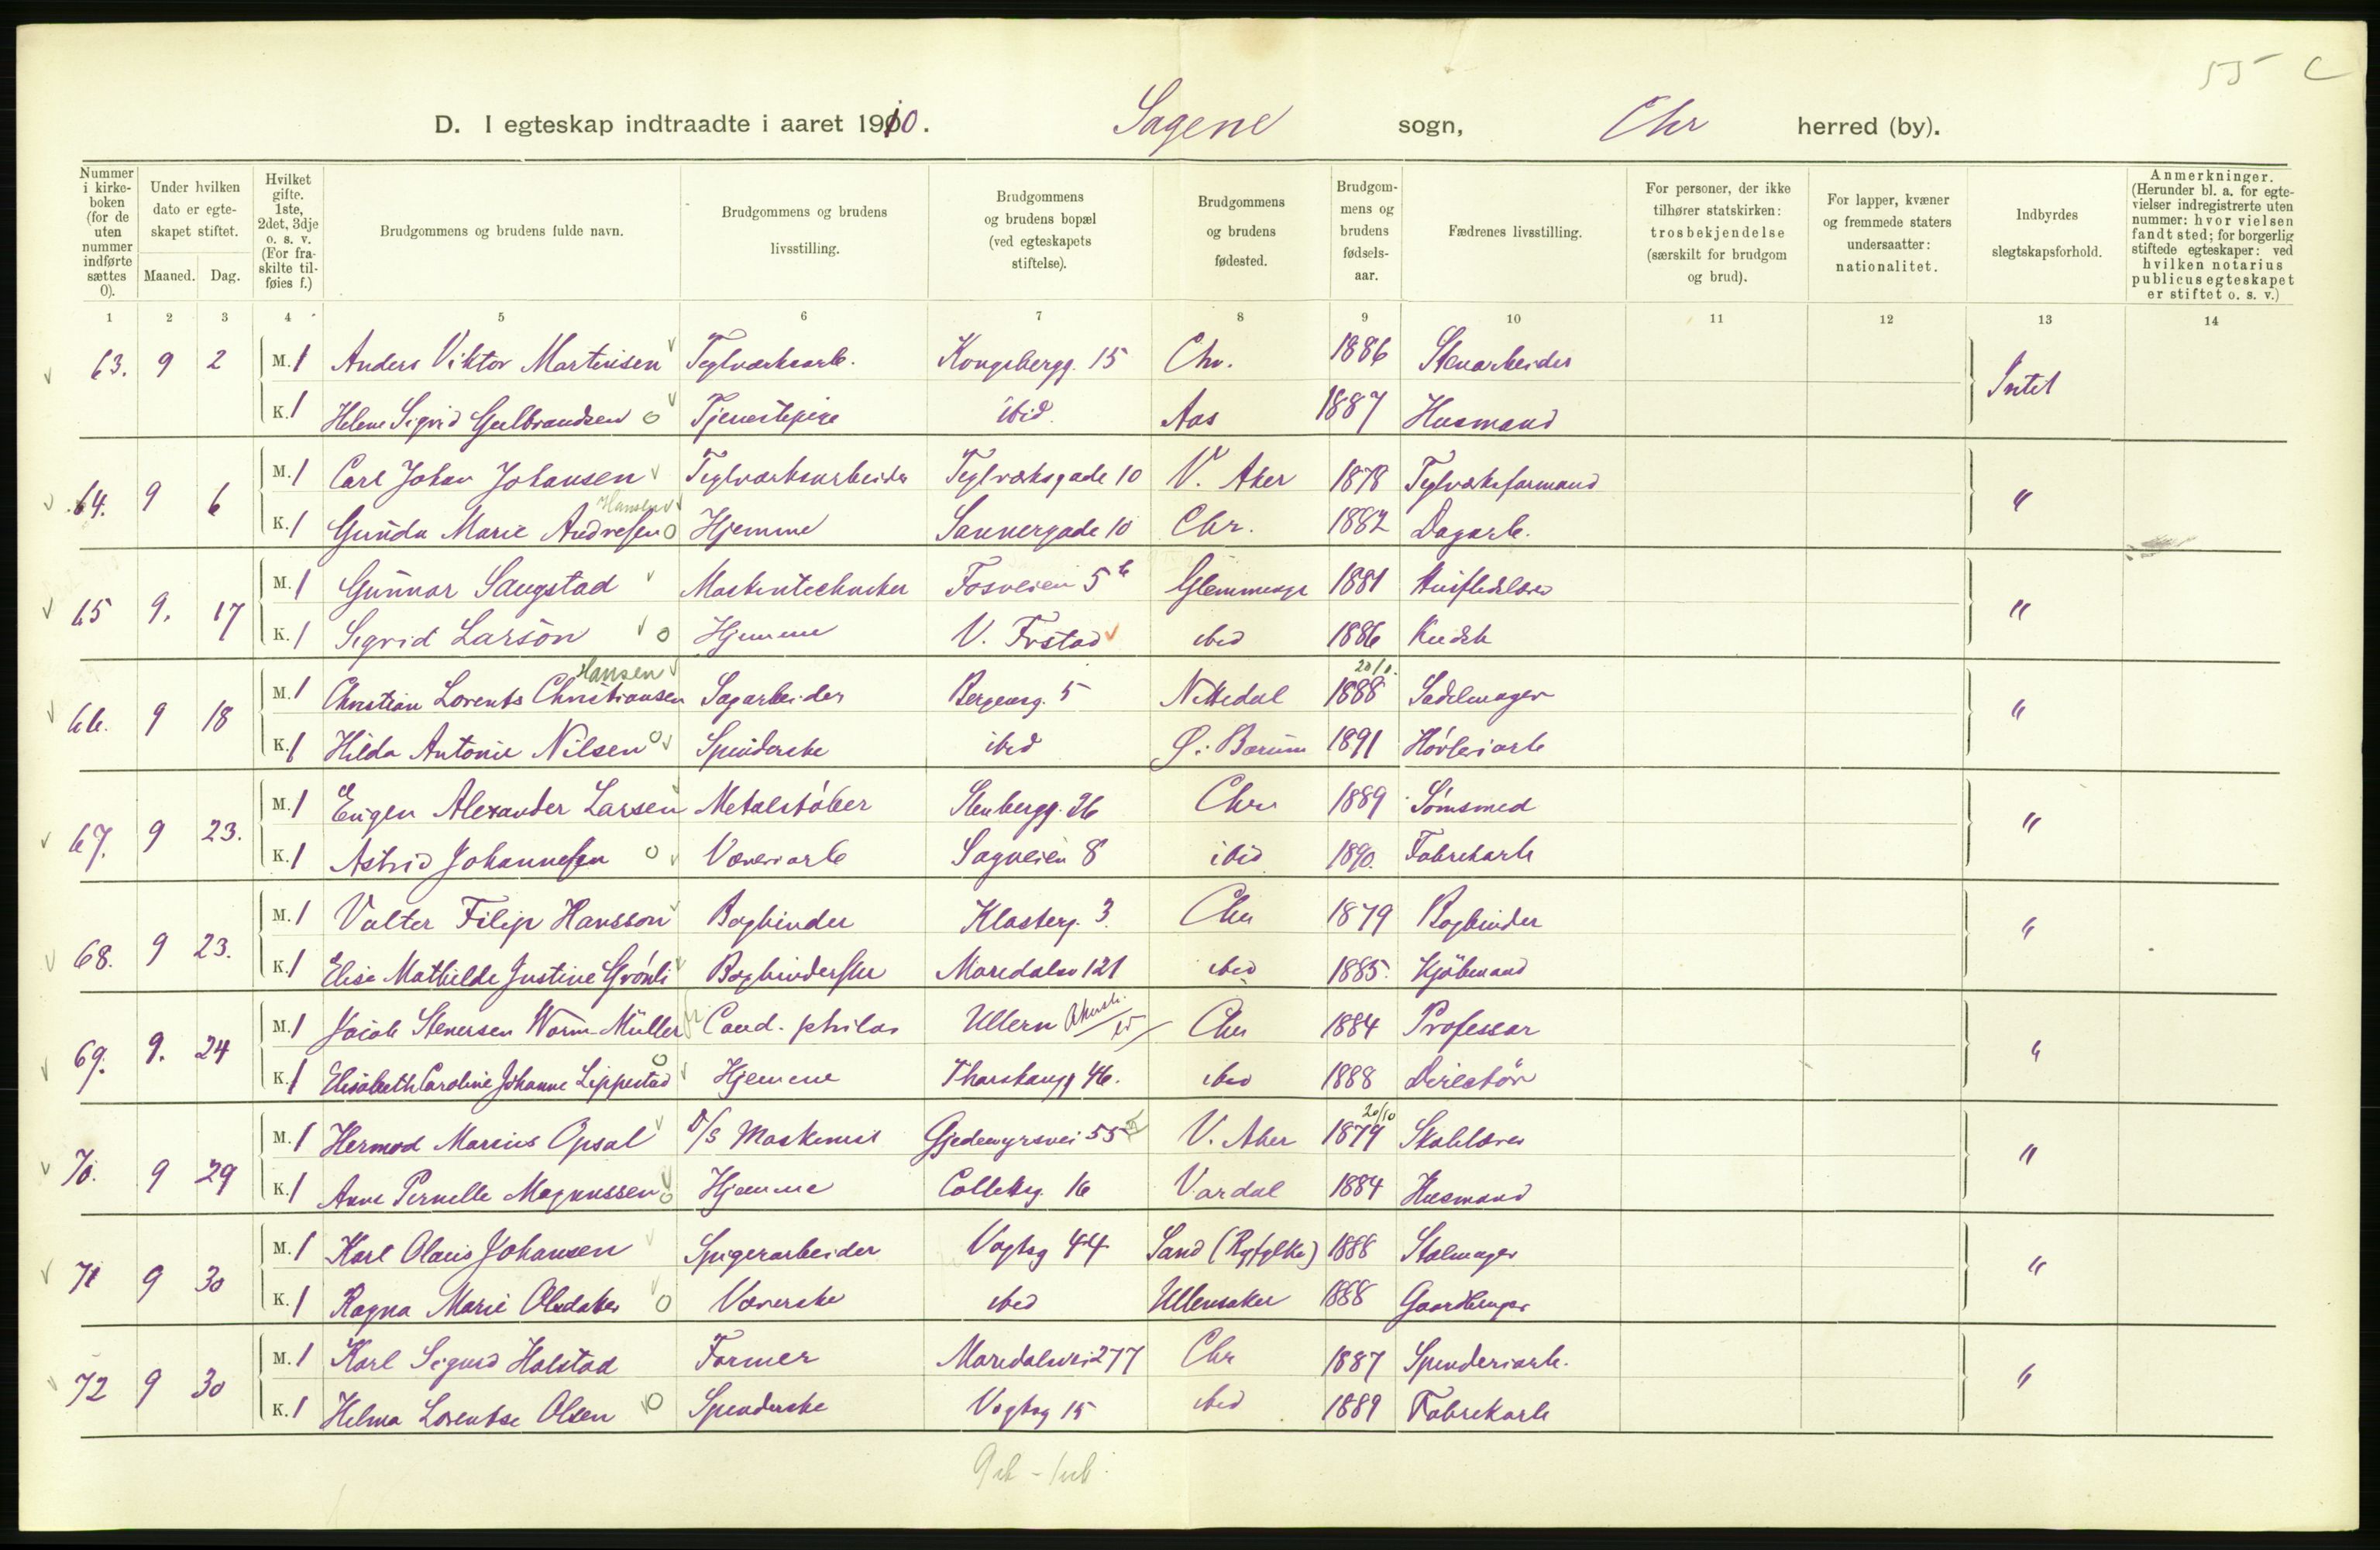 55 C
D. I egteskap indtraadte i aaret 1910. Sagene sogn, Chr herred (by).
Nummer i kirkeboken (for de uten nummer indførte sættes 0).
Under hvilken dato er egteskapet stiftet.
Maaned. Dag.
Hvilket gifte. 1ste, 2det, 3dje o. s. v. (For fraskilte tilføies f.)
Brudgommens og brudens fulde navn.
Brudgommens og brudens livsstilling.
Brudgommens og brudens bopæl (ved egteskapets stiftelse).
Brudgommens og brudens fødested.
Brudgommens og brudens fødselsaar.
Fædrenes livsstilling.
For personer, der ikke tilhører statskirken: trosbekjendelse (særskilt for brudgom og brud).
For lapper, kvæner og fremmede staters undersaatter: nationalitet.
Indbyrdes slegtskapsforhold.
Anmerkninger. (Herunder bl. a. for egtevielser indregistrerte uten nummer: hvor vielsen fandt sted; for borgerlig stiftede egteskaper: ved hvilken notarius publicus egteskapet er stiftet o. s. v.)
1 2 3 4 5 6 7 8 9 10 11 12 13 14
63. 9 2 M. 1 Anders Viktor Martinisen Teglværksarb. Kongsbergg. 15 Chr. 1886 Stenarbeider Intet
K. 1 Helene Sigrid Gulbrandsen o Tjenestepige ibid. Aas 1887 Husmand
64. 9 6 M. 1 Carl Johan Johansen Teglværksarbeider Teglværksgade 10 V. Aker 1878 Teglværksformand "
Hansen
K. 1 Gunda Marie Andresen o Hjemme Sannergade 10 Chr. 1882 Dagarb.
65 9. 17 M. 1 Gunnar Saugstad Maskintechniker Fosveien 5 b Glemminge 1881 "
K. 1 Sigrid Larsön o Hjemme V. Frstad ibid 1886 Kudsk
Hansen 20/8
66. 9 18 M. 1 Christian Lorents Christiansen Sagarbeider Bergensg. 5 Nittedal 1888 Sadelmager "
K. 1 Hilda Antonie Nilsen o Spinderske ibid Ø. Bærum 1891 Høvleriarb
67. 9 23. M. 1 Eugen Alexander Larsen Metalstøber Stenbergg. 26 Chr 1889 Sømsmed "
K. 1 Astrid Johannesen o Væveriarb Sagveien 8 ibid 1890. Fabrikarb
68. 9 23. M. 1 Valter Filip Hansson Bogbinder Klosterg. 3. Chr 1879 Bogbinder "
K. 1 Elise Mathilde Justine Grønli Bogbinderske Maridalsv 121 ibid 1885. Kjøbmand
69. 9. 24 M. 1 Jacob Stenersen Worm-Müller Cand. philos Ullern Akersh. Chr 1884 Professor "
K. 1 Elisabeth Caroline Johanne Lippestad o Hjemme Tharstangg 46. ibid 1888 Direktør
20/10
70. 9 29 M. 1 Hermod Marius Opsal D/S Maskinist Gjedemyrsvei 55 V. Aker 1879 Skolelærer "
K. 1 Anne Pernelle Magnussen o Hjemme Colletsg. 16 Vardal 1884 Husmand
71 9 30 M. 1 Karl Olaus Johansen Spigerarbeider Vogtsg 44 Sand (Ryfylke) 1888 Stolmager "
K. 1 Ragna Marie Olsdaker o Væverske ibid Ullensaker 1888 Gaardbruger
72 9 30 M. 1 Karl Sigurd Halstad Former Maridalsvei 277 Chr 1887 Spinderiarb. "
K. 1 Helma Lorentse Olsen o Spinderske Vogtsg 15 ibid 1889 Fabrikarb